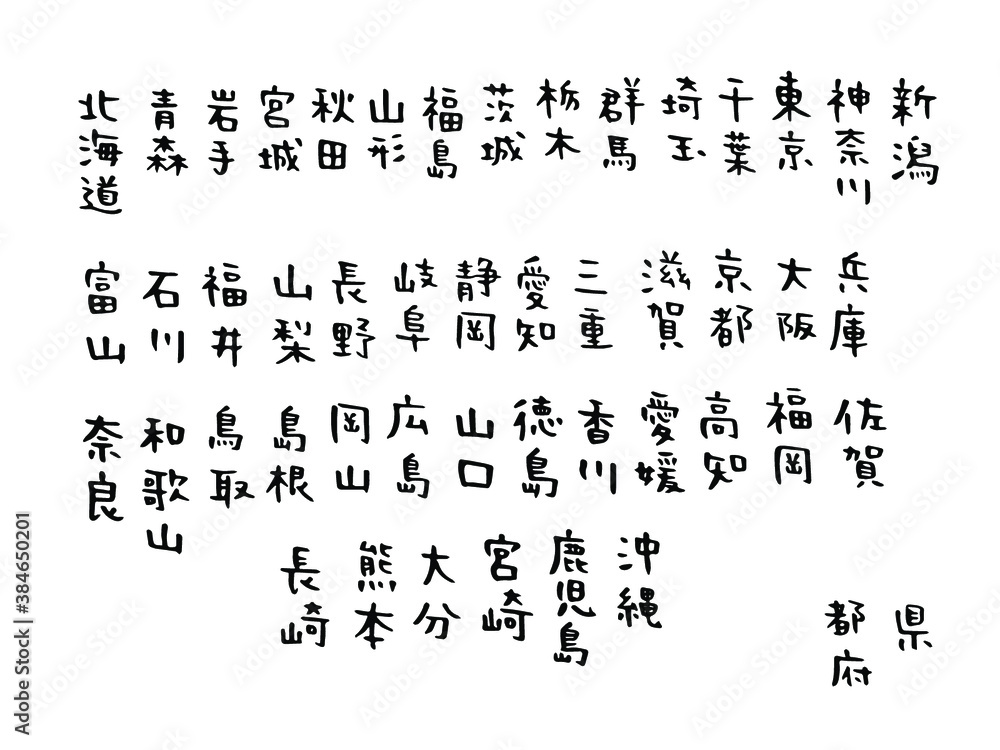 北海道
青森
岩手
宮城
秋田
山形
福島
茨城
栃木
群馬
埼玉
千葉
東京
神奈川
新潟
富山
石川
福井
山梨
長野
岐阜
静岡
愛知
三重
滋賀
京都
大阪
兵庫
奈良
和歌山
鳥取
島根
岡山
広島
山口
徳島
香川
愛媛
高知
福岡
佐賀
長崎
熊本
大分
宮崎
鹿児島
沖縄
都府
県
Adobe Stock | #384650201